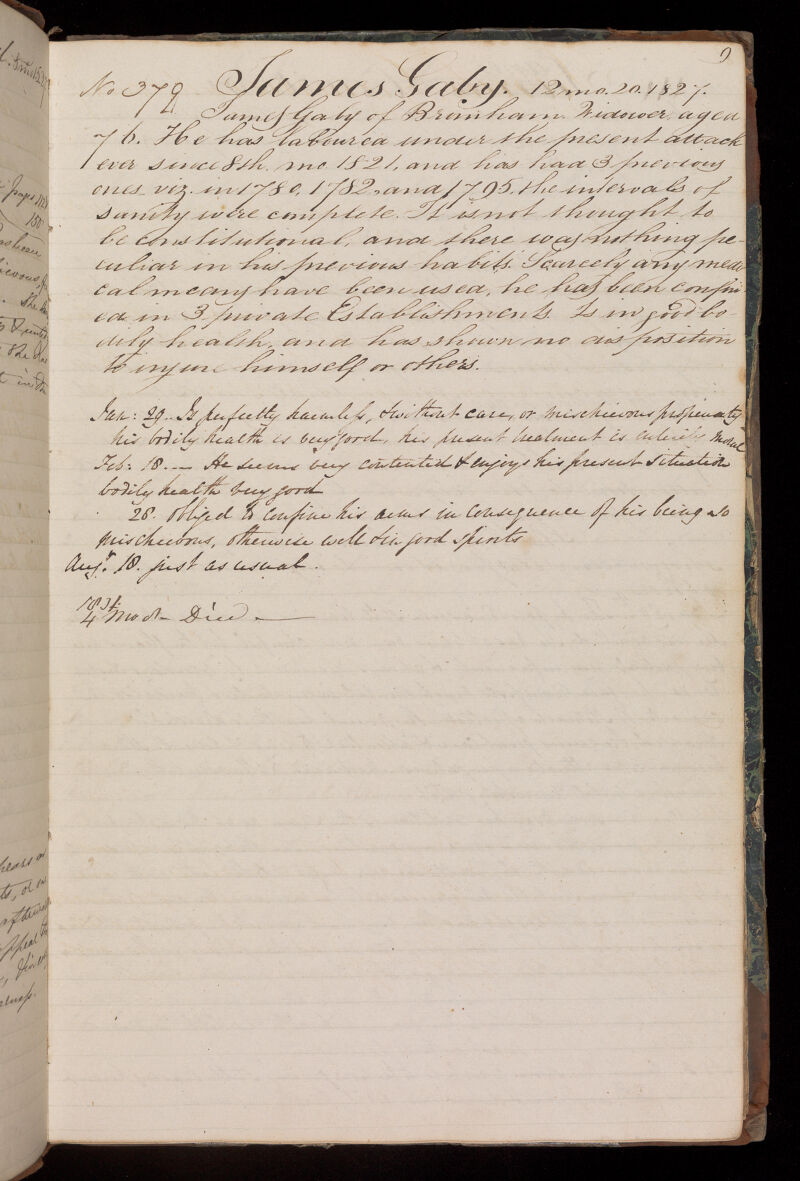 9
No 379 James Gaby. 12 mo. 20. 1827.
James Gaby of Bromham Widower, aged
76. He has laboured under the present attack
ever since 8th. mo 1821, and has had 3 previous
ones viz. in 1780, 1782, and 1795, the intervals of
sanity were complete. It is not thought to
be constitutional, and there was nothing pe-
culiar in his previous habits. Scarcely any medi
cal means have been used, he has been confin
ed in 3 private Establishments. Is in good bo-
dily health, and has shown no disposition
to injure himself or others.
Jan: 29. Is perfectly harmless, & without care, or mischievous propensity
his bodily health is very good, his present treatment is entirely moral
Feb: 18. — He seems very contented & enjoys his present situation
bodily health very good
28. obliged to confine his arms in consequence of his being so
mischievous, otherwise well & in good spirits
Augt. 18. just as usual.
4 mo Died —